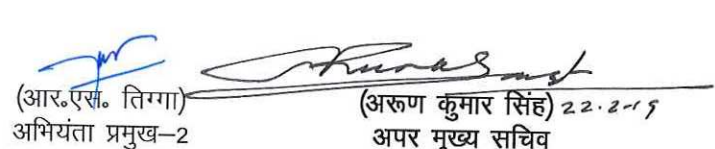 (आर॰एस॰ तिग्गा)
अभियंता प्रमुख–2
(अरूण कुमार सिंह) 22.2.19
अपर मुख्य सचिव